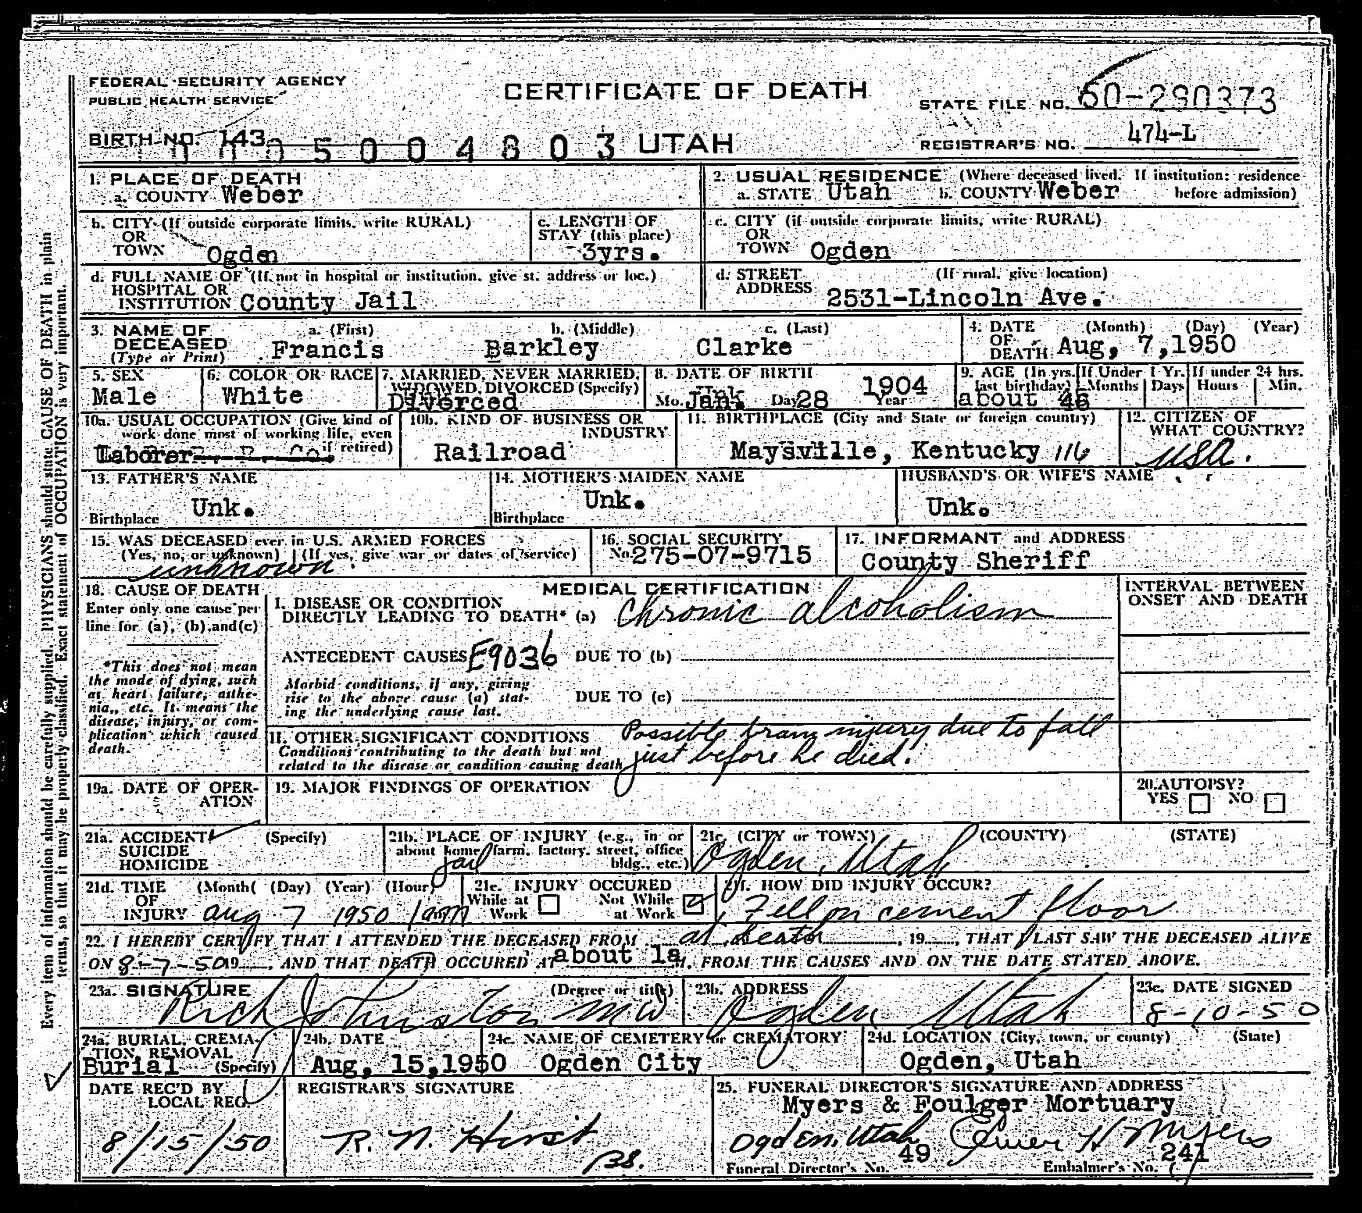 FEDERAL SECURITY AGENCY
PUBLIC HEALTH SERVICE
CERTIFICATE OF DEATH
STATE FILE NO. 50-290373
BIRTH NO. 143
0005004803 UTAH
REGISTRAR'S NO. 474-L
1. PLACE OF DEATH
a. COUNTY Weber
2. USUAL RESIDENCE (Where deceased lived. If institution: residence before admission)
a. STATE Utah b. COUNTY Weber
b. CITY (If outside corporate limits, write RURAL)
OR
TOWN Ogden
c. LENGTH OF
STAY (this place)
3yrs.
c. CITY (if outside corporate limits, write RURAL)
OR
TOWN Ogden
d. FULL NAME OF (If not in hospital or institution, give st. address or loc.)
HOSPITAL OR
INSTITUTION County Jail
d. STREET (If rural, give location)
ADDRESS 2531-Lincoln Ave.
3. NAME OF DECEASED (Type or Print)
a. (First) b. (Middle) c. (Last)
Francis Barkley Clarke
4. DATE (Month) (Day) (Year)
OF
DEATH Aug, 7,1950
5. SEX
Male
6. COLOR OR RACE
White
7. MARRIED, NEVER MARRIED,
WIDOWED, DIVORCED (Specify)
Divorced
8. DATE OF BIRTH
Unk.
Mo. Jan. Day 28 Year 1904
9. AGE (In yrs. last birthday)
about 46
If Under 1 Yr. Months Days
If under 24 hrs. Hours Min.
10a. USUAL OCCUPATION (Give kind of
work done most of working life, even
if retired)
Laborer R. R. Co.
10b. KIND OF BUSINESS OR
INDUSTRY
Railroad
11. BIRTHPLACE (City and State or foreign country)
Maysville, Kentucky 116
12. CITIZEN OF
WHAT COUNTRY?
USA.
13. FATHER'S NAME
Unk.
Birthplace
14. MOTHER'S MAIDEN NAME
Unk.
Birthplace
HUSBAND'S OR WIFE'S NAME
Unk.
15. WAS DECEASED ever in U.S. ARMED FORCES
(Yes, no, or unknown) (If yes, give war or dates of service)
unknown
16. SOCIAL SECURITY
No. 275-07-9715
17. INFORMANT and ADDRESS
County Sheriff
18. CAUSE OF DEATH
Enter only one cause per
line for (a), (b), and (c)
*This does not mean
the mode of dying, such
as heart failure, asthe-
nia, etc. It means the
disease, injury, or com-
plication which caused
death.
MEDICAL CERTIFICATION
I. DISEASE OR CONDITION
DIRECTLY LEADING TO DEATH* (a) Chronic alcoholism
ANTECEDENT CAUSES E9036 DUE TO (b)
Morbid conditions, if any, giving
rise to the above cause (a) stat-
ing the underlying cause last.
DUE TO (c)
II. OTHER SIGNIFICANT CONDITIONS
Conditions contributing to the death but not
related to the disease or condition causing death
Possible brain injury due to fall
just before he died.
INTERVAL BETWEEN
ONSET AND DEATH
19a. DATE OF OPER-
ATION
19. MAJOR FINDINGS OF OPERATION
20. AUTOPSY?
YES NO
21a. ACCIDENT (Specify)
SUICIDE
HOMICIDE
21b. PLACE OF INJURY (e.g., in or
about home, farm, factory, street, office
bldg., etc.)
jail
21c. (CITY or TOWN) (COUNTY) (STATE)
Ogden, Utah
21d. TIME (Month) (Day) (Year) (Hour)
OF
INJURY Aug 7 1950 1am
21e. INJURY OCCURED
While at Work Not While at Work
21f. HOW DID INJURY OCCUR?
Fell on cement floor
22. I HEREBY CERTIFY THAT I ATTENDED THE DECEASED FROM at death, 19__, THAT I LAST SAW THE DECEASED ALIVE
ON 8-7-50 19__, AND THAT DEATH OCCURED AT about 1a M, FROM THE CAUSES AND ON THE DATE STATED ABOVE.
23a. SIGNATURE (Degree or title)
Rich Johnston MD
23b. ADDRESS
Ogden Utah
23c. DATE SIGNED
8-10-50
24a. BURIAL, CREMA-
TION REMOVAL
(Specify)
Burial
24b. DATE
Aug, 15,1950
24c. NAME OF CEMETERY or CREMATORY
Ogden City
24d. LOCATION (City, town, or county) (State)
Ogden, Utah
DATE REC'D BY
LOCAL REG.
8/15/50
REGISTRAR'S SIGNATURE
R. N. Hirst
25. FUNERAL DIRECTOR'S SIGNATURE AND ADDRESS
Myers & Foulger Mortuary
Ogden, Utah Elmer H. Myers
49 241
Funeral Director's No. Embalmer's No.
Every item of information should be carefully supplied. PHYSICIANS should state CAUSE OF DEATH in plain
terms, so that it may be properly classified. Exact statement of OCCUPATION is very important.